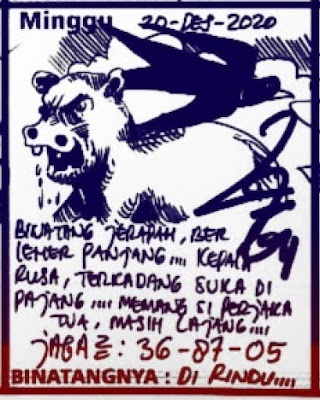 Minggu 20-DES-2020
BINATANG JERAPAH, BER
LEHER PANJANG.... KEPALA
RUSA, TERKADANG SUKA DI
PAJANG.... MEMANG SI PERJAKA
TUA, MASIH LAJANG....
JAGA2 : 36-87-05
BINATANGNYA : DI RINDU....